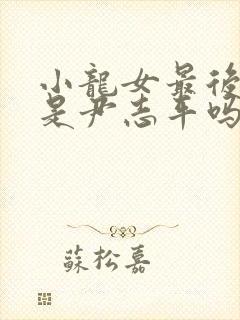 小龍女最後
是尹志平吗
蘇松嘉